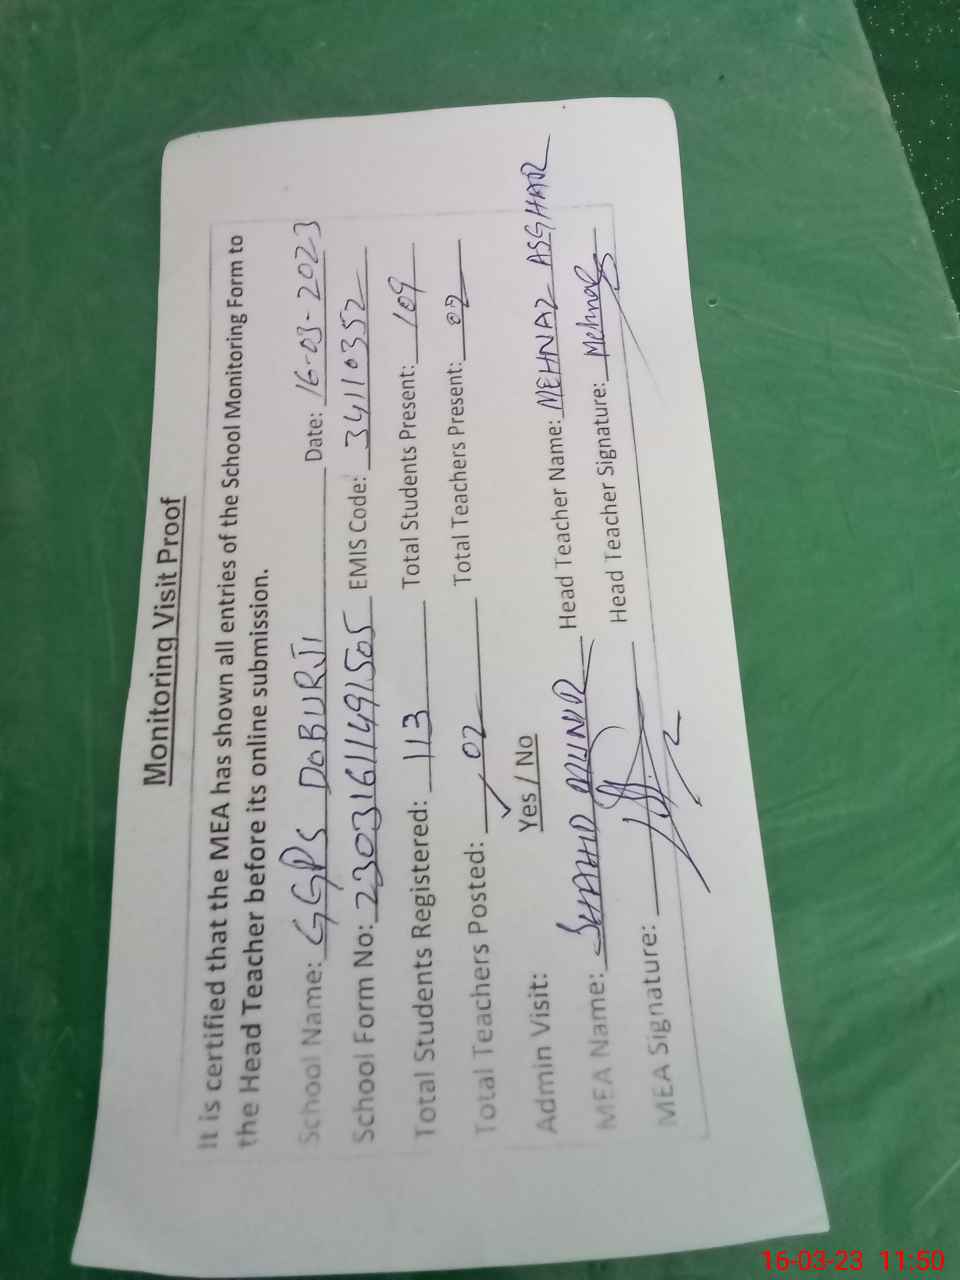 Monitoring Visit Proof
It is certified that the MEA has shown all entries of the School Monitoring Form to
the Head Teacher before its online submission.
School Name: GGPS DOBURJI Date: 16-03-2023
School Form No: 23031611491505 EMIS Code: 34110352
Total Students Registered: 113 Total Students Present: 109
Total Teachers Posted: 02 Total Teachers Present: 02
Admin Visit: Yes / No
MEA Name: SHAHID MUNIR Head Teacher Name: MEHNAZ ASGHAR
MEA Signature: Head Teacher Signature: Mehnaz
16-03-23 11:50